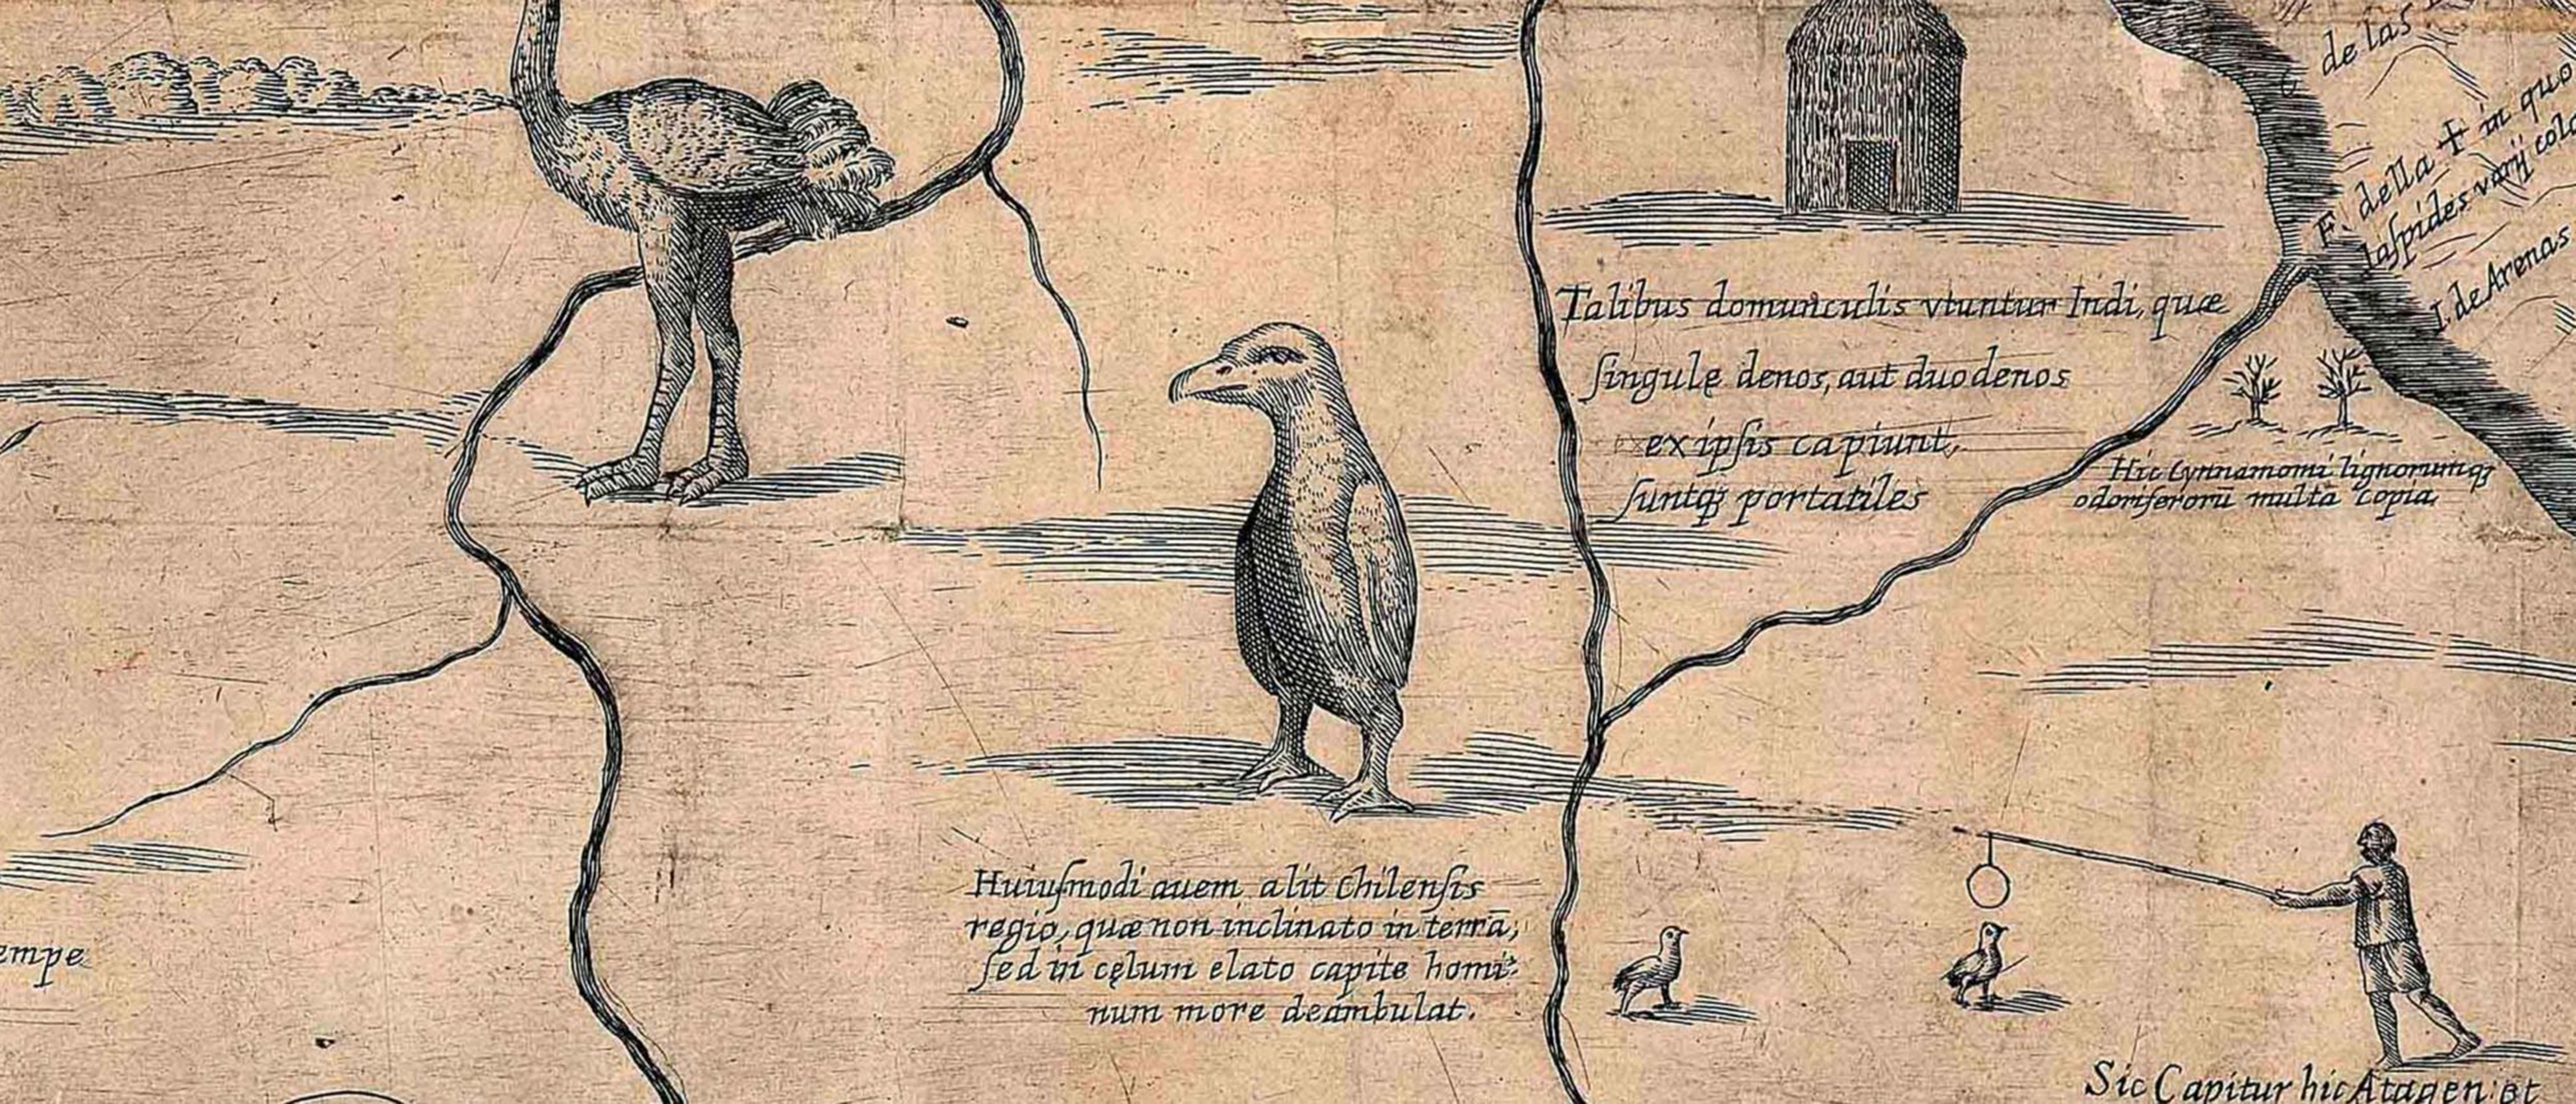 de las
F. della ✝ in quo
Iaſpides varij colo
I. de Arenas
Talibus domunculis vtuntur Indi, quæ
ſingulę denos, aut duodenos
ex ipſis capiunt,
ſuntqȝ portatiles
Hic Cynnamomi lignorumqȝ
odoriferorū multa copia
Huiuſmodi auem alit Chilenſis
regio, quæ non inclinato in terrā,
ſed in cęlum elato capite homi-
num more deambulat.
empe
Sic Capitur hic Atagen: et